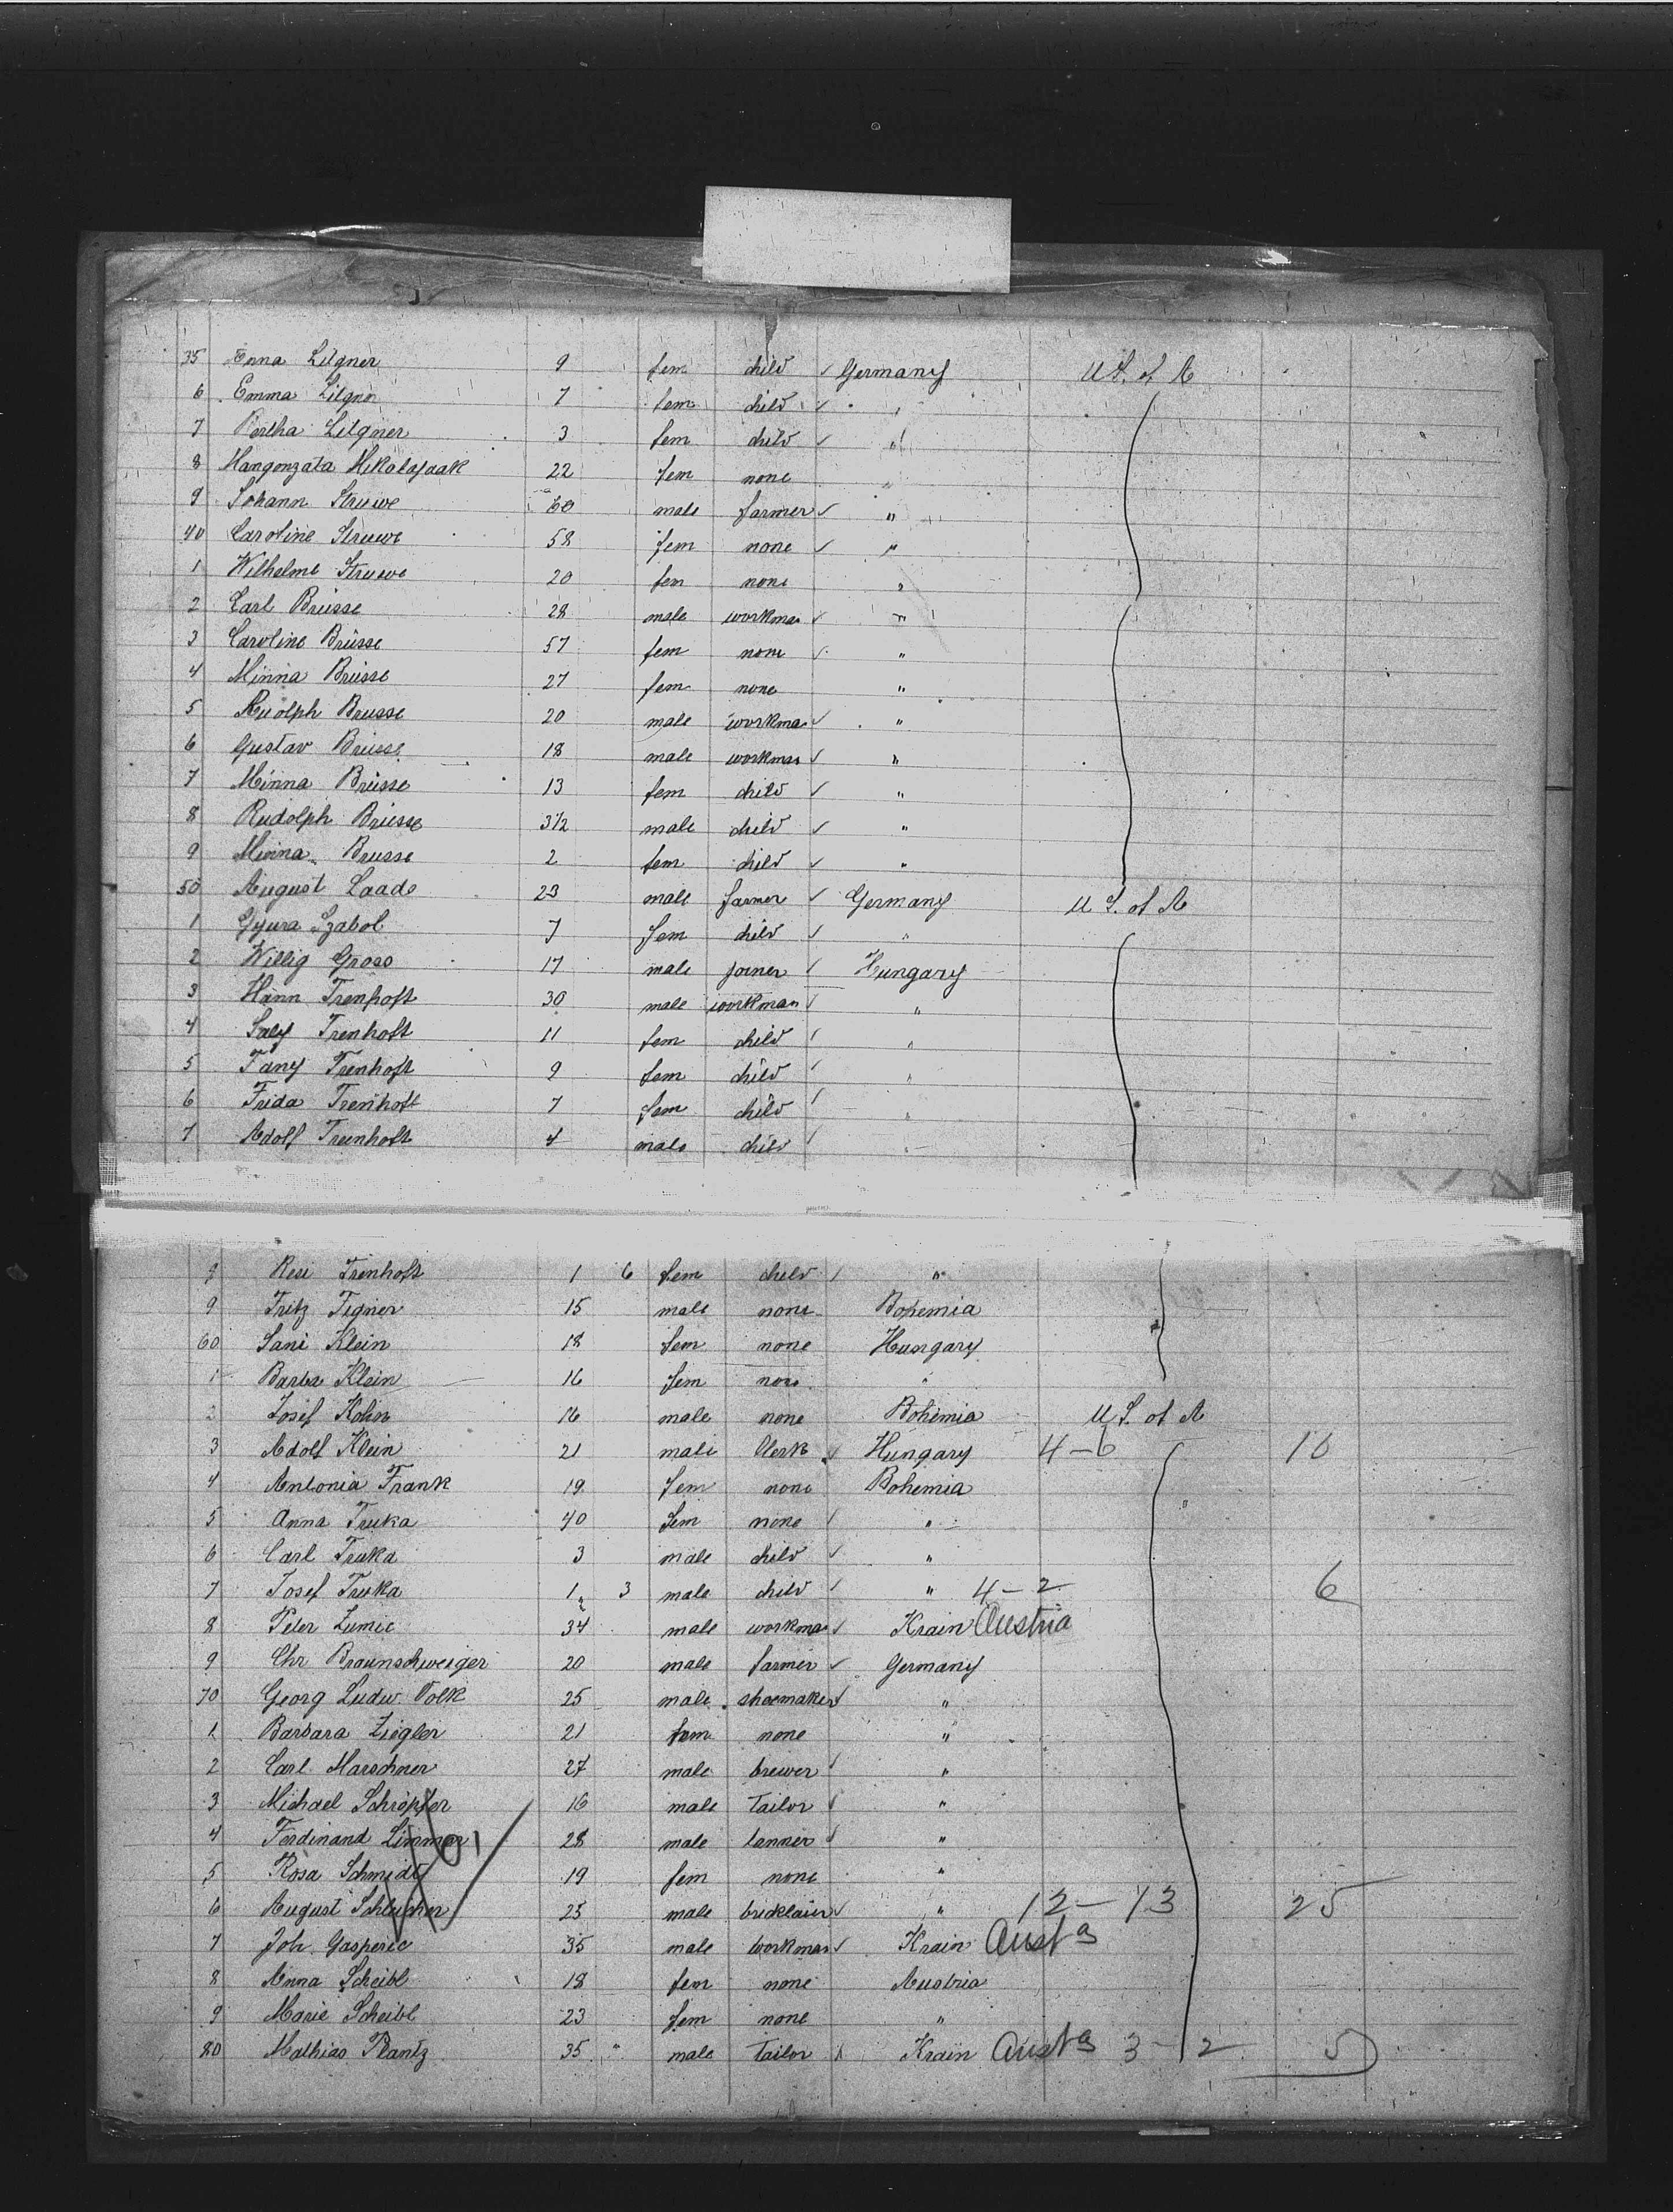 35 Anna Lilgner 9 fem child ✓ Germany U S. of A
6 Emma Lilgner 7 fem child ✓ "
7 Bertha Lilgner 3 fem child ✓ "
8 Mangonzata Mikolajaak 22 fem none "
9 Johann Struwe 60 male farmer ✓ "
40 Caroline Struwe 58 fem none ✓ "
1 Wilhelme Struwe 20 fem none "
2 Carl Brüsse 28 male workman ✓ "
3 Caroline Brüsse 57 fem none ✓ "
4 Minna Brüsse 27 fem none "
5 Ruolph Brusse 20 male workman ✓ "
6 Gustav Brüsse 18 male workman ✓ "
7 Minna Brüsse 13 fem child ✓ "
8 Rudolph Brüsse 3 1/2 male child ✓ "
9 Minna Brusse 2 fem child ✓ "
50 August Laade 23 male farmer ✓ Germany U S. of A
1 Gyura Szabol 7 fem child ✓ "
2 Willig Gross 17 male joiner ✓ Hungary
3 Hann Trenhoft 30 male workman ✓ "
4 Saly Trenhoft 11 fem child ✓ "
5 Fany Trenhoft 9 fem child ✓ "
6 Frida Trenhoft 7 fem child ✓ "
7 Adolf Trenhoft 4 male child ✓ "
8 Resi Trenhoft 1 6 fem child ✓ "
9 Fritz Figner 15 male none Bohemia
60 Sani Klein 18 fem none Hungary
1 Barba Klein 16 fem none "
2 Josef Kohn 16 male none Bohemia U S. of A
3 Adolf Klein 21 male Clerk ✓ Hungary 4-6 10
4 Antonia Frank 19 fem none Bohemia
5 Anna Truka 40 fem none ✓ "
6 Carl Truka 3 male child ✓ "
7 Josef Truka 1 3 male child ✓ " 4-2 6
8 Peter Zumic 34 male workman ✓ Krain Austria
9 Chr Braunschweiger 20 male farmer ✓ Germany
70 Georg Ludw. Volk 25 male shoemaker ✓ "
1 Barbara Ziegler 21 fem none "
2 Carl Marschner 27 male brewer ✓ "
3 Michael Schröpfer 16 male Tailor ✓ "
4 Ferdinand Limmer 28 male tanner ✓ "
5 Rosa Schmidt 19 fem none "
6 August 25 male bricklaier ✓ " 12-13 25
7 Joh. Gasperic 35 male workman ✓ Krain Aust a
8 Anna Scheibl 18 fem none Austria
9 Marie Scheibl 23 fem none "
80 Mathias Plantz 35 " male Tailor Krain Aust a 3-2 5